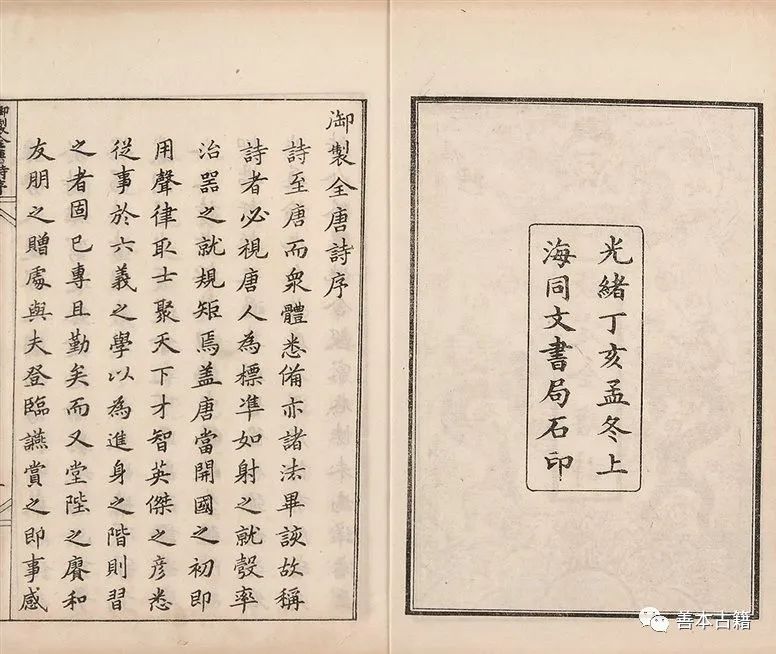 光緒丁亥孟冬上
海同文書局石印
御製全唐詩序
詩至唐而衆體悉備亦諸法畢該故稱
詩者必視唐人為標準如射之就彀率
治器之就規矩焉蓋唐當開國之初即
用聲律取士聚天下才智英傑之彦悉
從事於六義之學以為進身之階則習
之者固已專且勤矣而又堂陛之賡和
友朋之贈處與夫登臨讌賞之即事感
御製全唐詩序
善本古籍